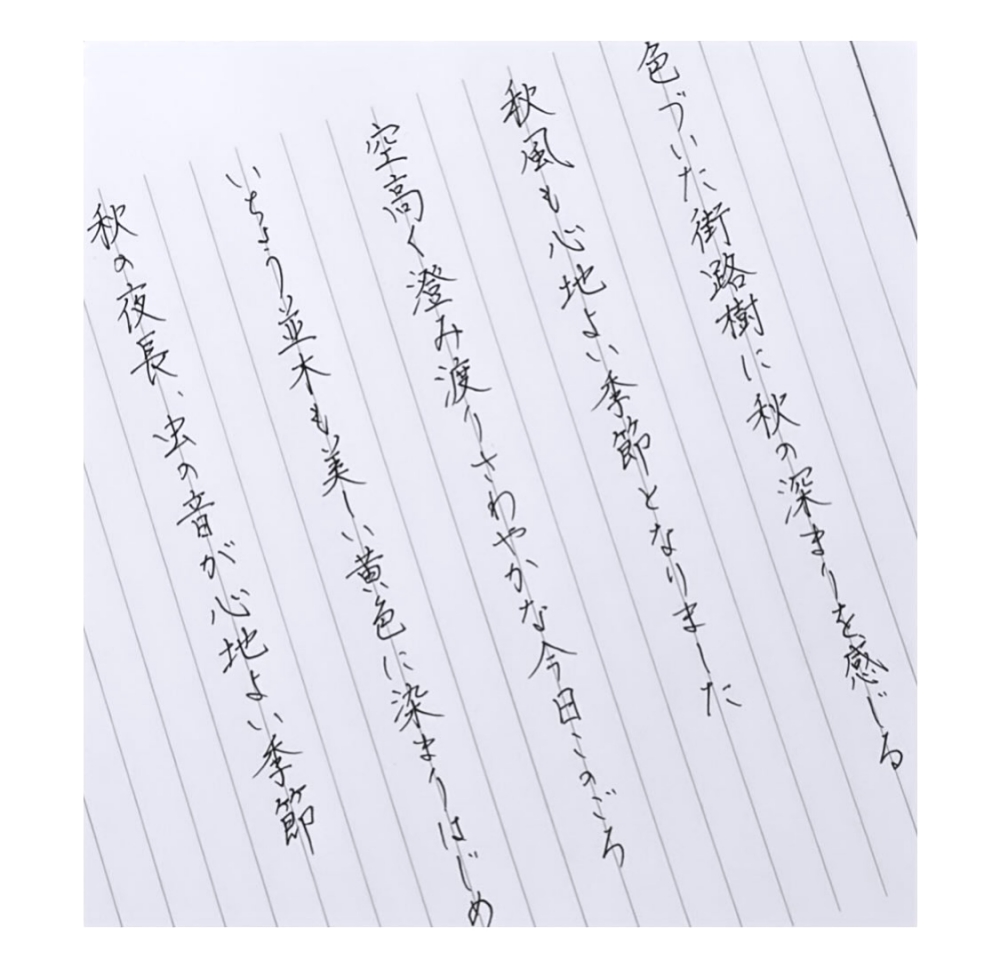 色づいた街路樹に秋の深まりを感じる
秋風も心地よい季節となりました
空高く澄み渡りさわやかな今日このごろ
いちょう並木も美しい黄色に染まりはじめ
秋の夜長、虫の音が心地よい季節